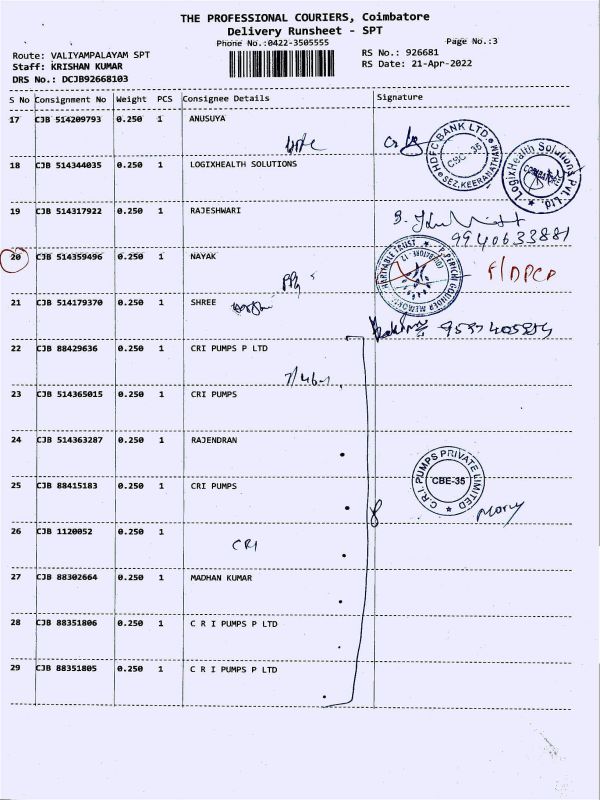 THE PROFESSIONAL COURIERS, Coimbatore
Delivery Runsheet - SPT
Phone No.:0422-3505555 Page No.:3
Route: VALIYAMPALAYAM SPT RS No.: 926681
Staff: KRISHAN KUMAR RS Date: 21-Apr-2022
DRS No.: DCJB92668103
S No Consignment No Weight PCS Consignee Details Signature
17 CJB 514209793 0.250 1 ANUSUYA
HDFC BANK LTD. CSC - 35 SEZ, KEERANATHAM
18 CJB 514344035 0.250 1 LOGIXHEALTH SOLUTIONS
LogixHealth Solutions Pvt. Ltd.
19 CJB 514317922 0.250 1 RAJESHWARI
9940633881
20 CJB 514359496 0.250 1 NAYAK
21 CJB 514179370 0.250 1 SHREE
22 CJB 88429636 0.250 1 CRI PUMPS P LTD
23 CJB 514365015 0.250 1 CRI PUMPS
24 CJB 514363287 0.250 1 RAJENDRAN
25 CJB 88415183 0.250 1 CRI PUMPS
C.R.I. PUMPS PRIVATE LIMITED CBE-35
26 CJB 1120052 0.250 1
CRI
27 CJB 88302664 0.250 1 MADHAN KUMAR
28 CJB 88351806 0.250 1 C R I PUMPS P LTD
29 CJB 88351805 0.250 1 C R I PUMPS P LTD